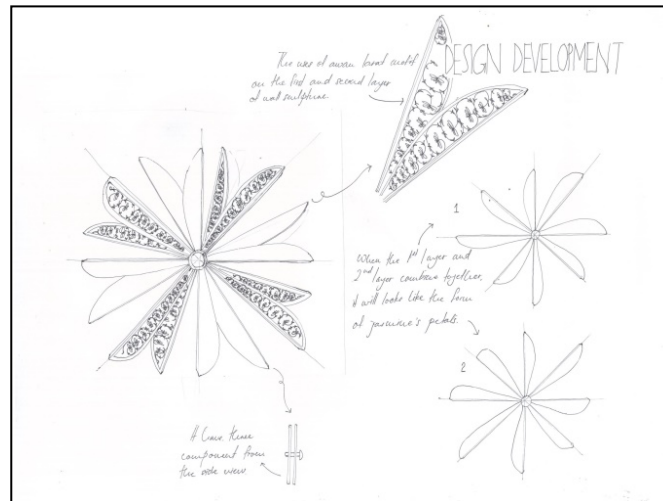 DESIGN DEVELOPMENT
The uses of awan larat motif
on the first and second layer
of wall sculpture.
1
When the 1st layer and
2nd layer combine together,
it will looks like the form
of jasmine's petals.
2
It have three
component from
the side view